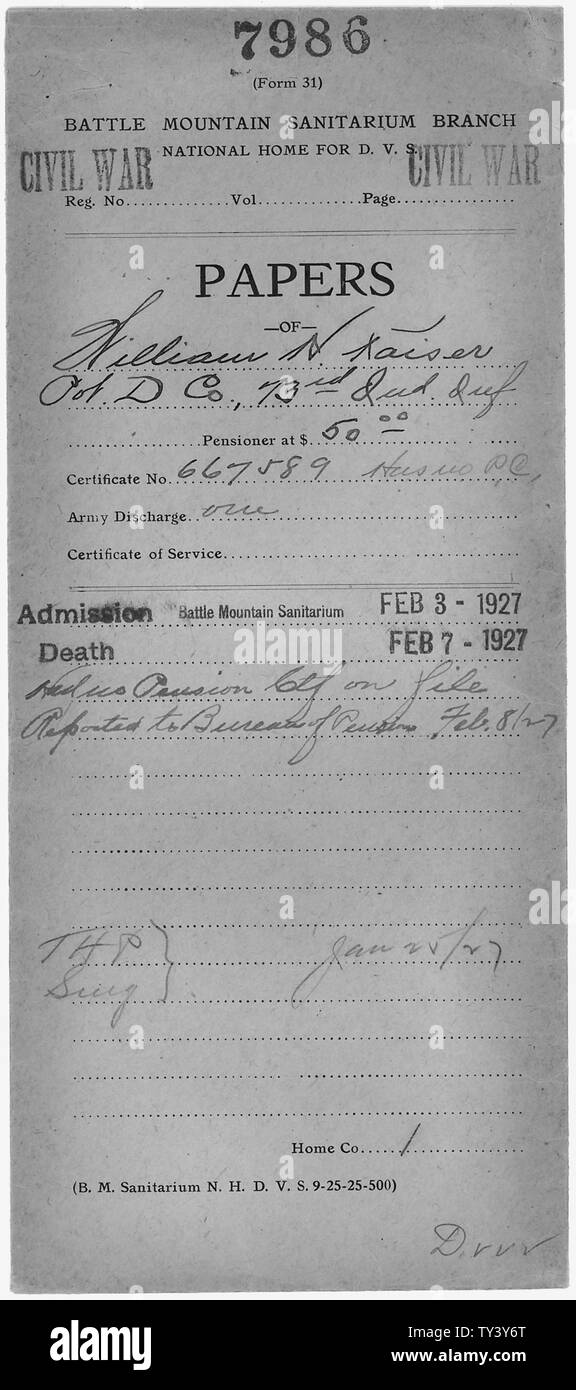 7986
(Form 31)
BATTLE MOUNTAIN SANITARIUM BRANCH
NATIONAL HOME FOR D. V. S.
CIVIL WAR CIVIL WAR
Reg. No. Vol. Page
PAPERS
—OF—
William H. Kaiser
Pvt. D Co., 73rd Ind Inf
Pensioner at $ 50.00
Certificate No. 667589 Has no P.C.,
Army Discharge. one
Certificate of Service
Admission Battle Mountain Sanitarium FEB 3 - 1927
Death FEB 7 - 1927
Had no Pension Ctf on file
Reported to Bureau of Pensions Feb. 8/27
T H P Jan 25/27
Surg
Home Co. 1
(B. M. Sanitarium N. H. D. V. S. 9-25-25-500)
alamy
Image ID: TY3Y6T
www.alamy.com